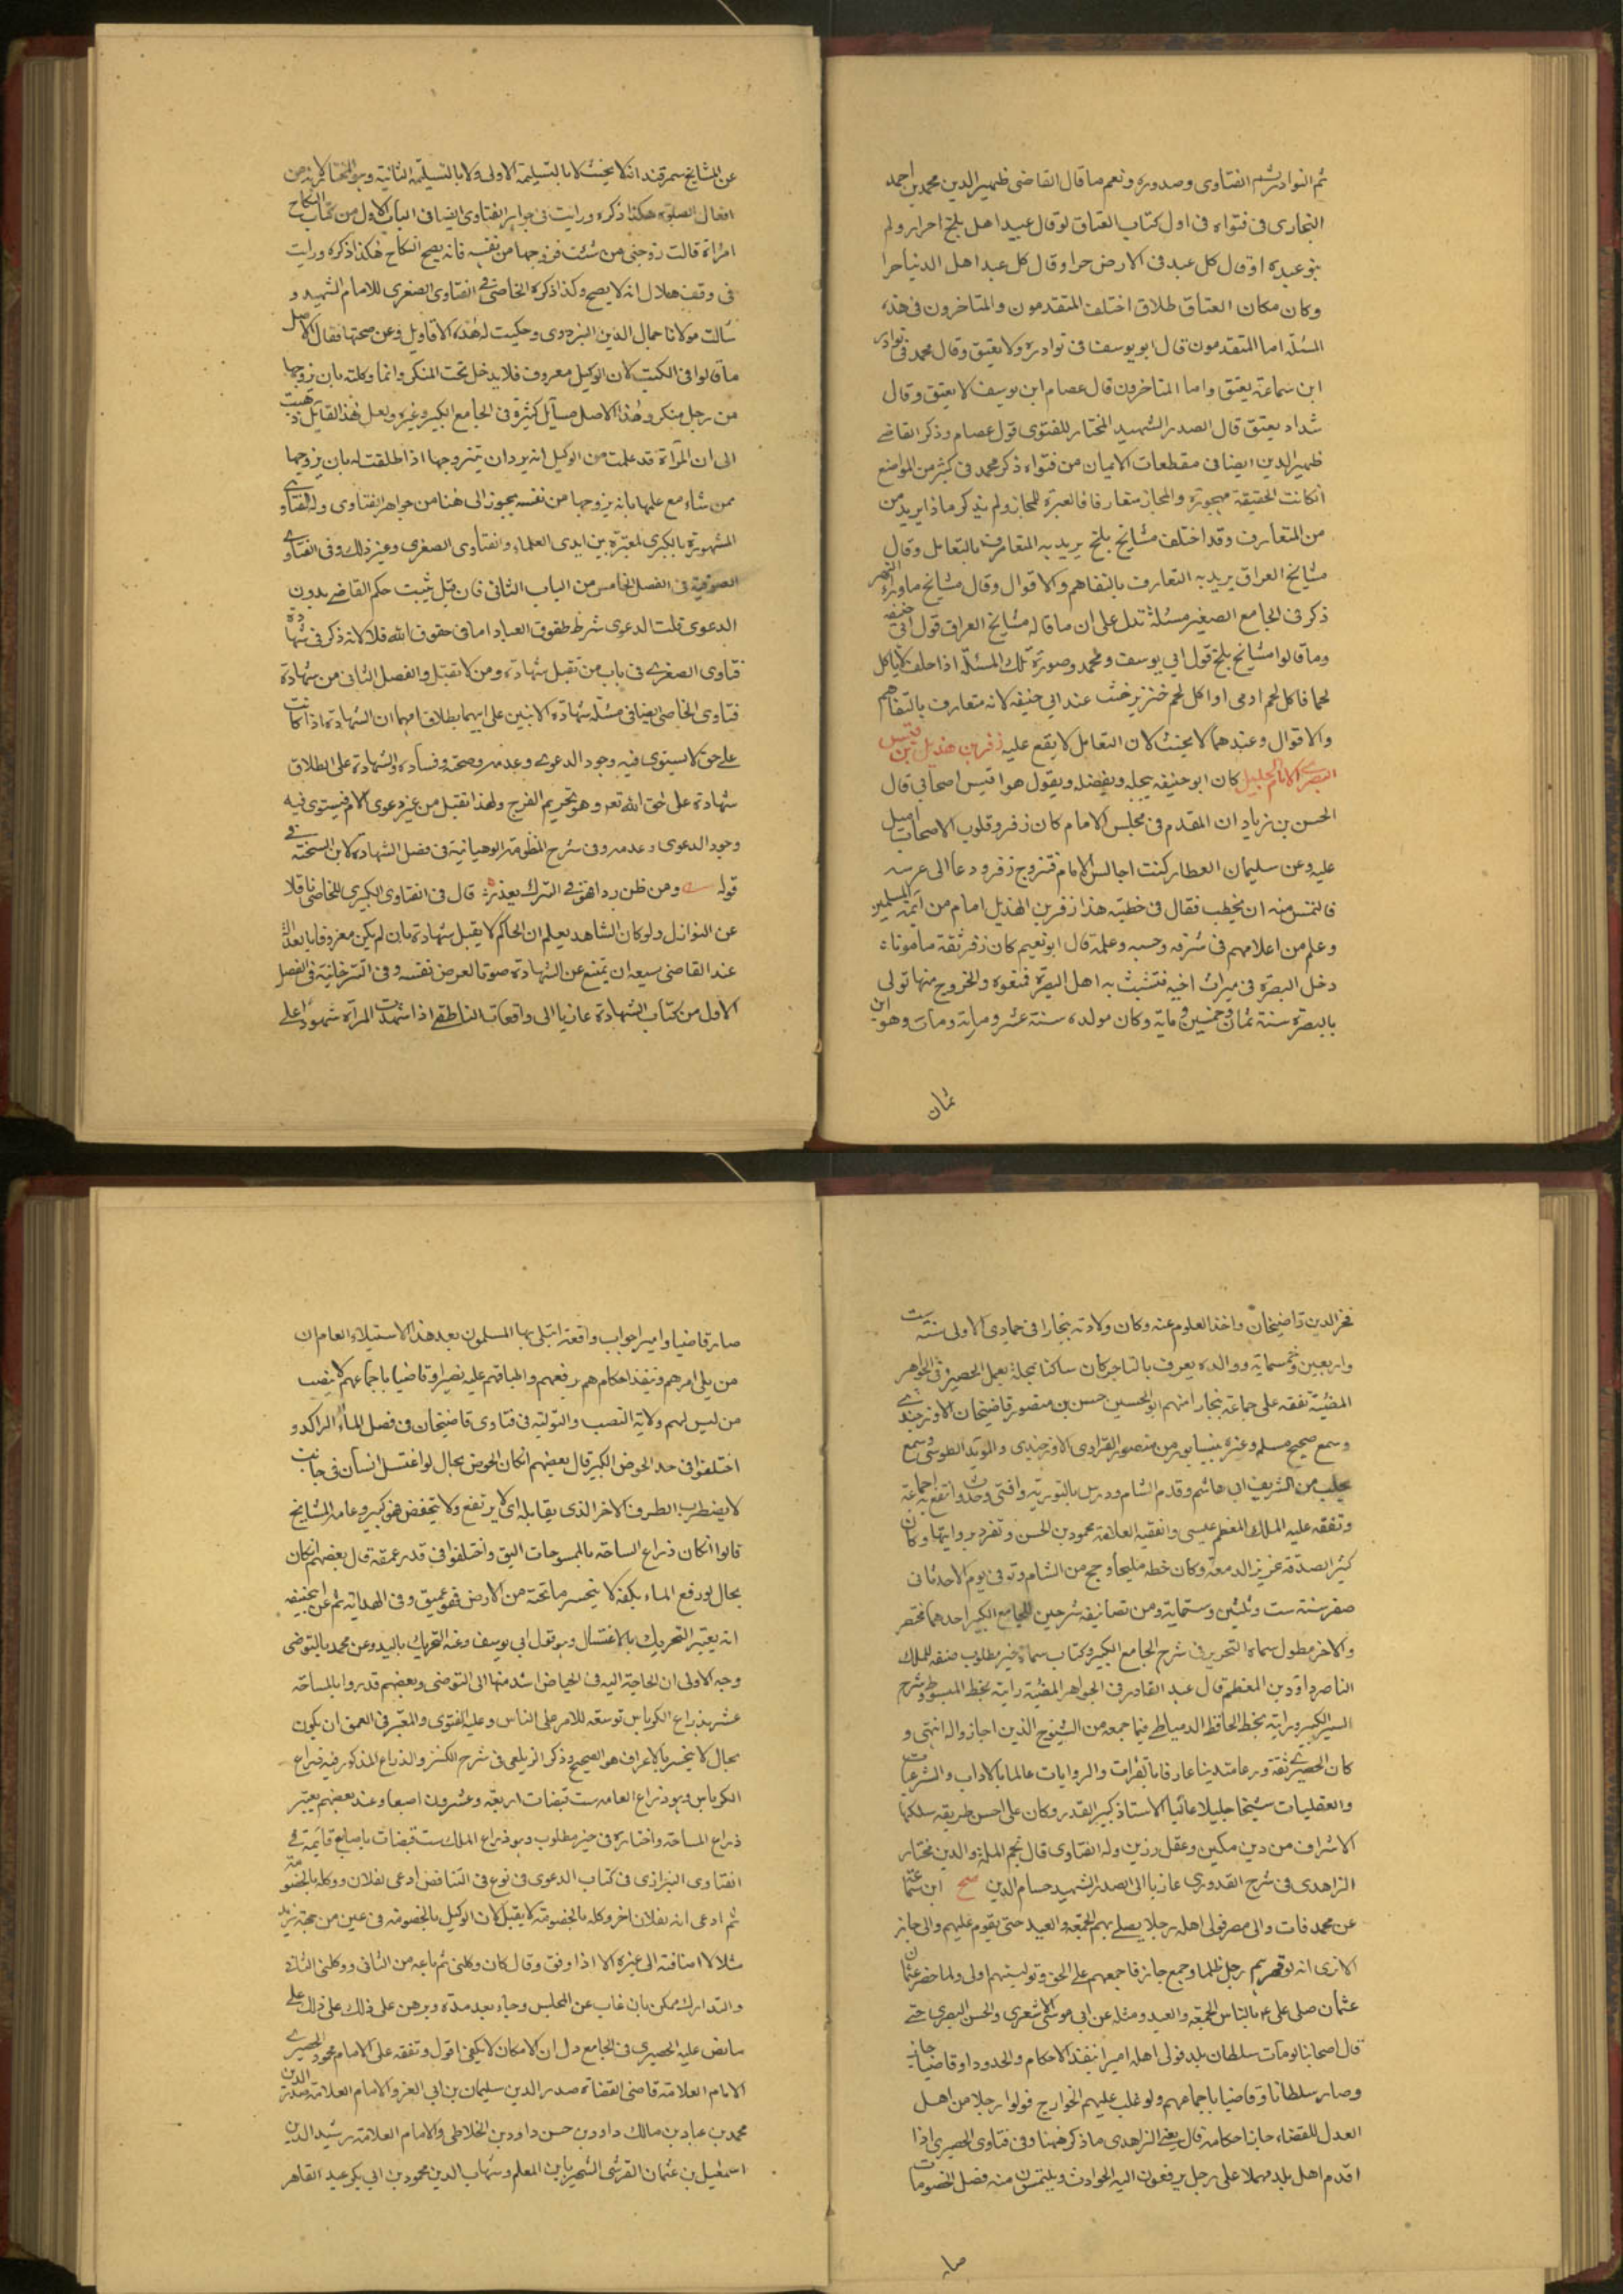 ثم النوادر ثم الفتاوى وصدوره ونعم ما قال القاضى ظهير الدين محمد بن احمد
البخارى فى فتواه فى اول كتاب العتاق لو قال عبيد اهل بلخ احرار ولم
ينو عبده او قال كل عبد فى الارض حر او قال كل عبد اهل الدنيا حرا
وكان مكان العتاق طلاق اختلف المتقدمون والمتاخرون فى هذه
المسئلة اما المتقدمون قال ابو يوسف فى نوادره ولا يعتق وقال محمد فى نوادر
ابن سماعة يعتق واما المتاخرون قال عصام ابن يوسف لا يعتق وقال
شداد يعتق قال الصدر الشهيد المختار للفتوى قول عصام وذكر القاضے
ظهير الدين ايضا فى مقطعات الايمان من فتواه ذكر محمد فى كثير من المواضع
انكانت الحقيقة مهجورة والمجاز متعارفا فالعبرة للمجاز ولم يذكر ماذا يريد من
من المتعارف وقد اختلف مشايخ بلخ يريد به المتعارف بالتعامل وقال
مشايخ العراق يريد به التعارف بالتفاهم والاقوال وقال مشايخ ماوراء النهر
ذكر فى الجامع الصغير مسئلة تدل على ان ما قاله مشايخ العراق قول ابى حنيفه
وما قالوا مشايخ بلخ قول ابى يوسف ومحمد وصورة تلك المسئلة اذا حلف لا ياكل
لحما فاكل لحم ادمى او اكل لحم خنزير يحنث عند ابى حنيفه لانه متعارف بالتفاهم
والاقوال وعندهما لا يحنث لان التعامل لا يقع عليه زفر بن هذيل بن قيس
البصرى الامام الجليل كان ابو حنيفه يجله ويفضله ويقول هو اقيس اصحابى قال
الحسن بن زياد ان المقدم فى مجلس الامام كان زفر وقلوب الاصحاب اميل
عليه وعن سليمان العطار كنت اجالس الامام فتزوج زفر ودعا الى عرسه
فالتمس منه ان يخطب فقال فى خطبته هذا زفر بن الهذيل امام من ائمة المسلمين
وعلم من اعلامهم فى شرفه وحسبه وعلمه قال ابو نعيم كان زفر ثقة مامونا ه
دخل البصرة فى ميراث اخيه فتشبث به اهل البصرة فمنعوه والخروج منها تولى
بالبصرة سنة ثمان وخمسين ومايه وكان مولده سنة عشر ومايه ومات وهو ابن
ثمان
عن المشايخ سمرقند انه لا يحنث لا بالتسليمة الاولى ولا بالتسليمة الثانية وهو المختار لانه من
افعال الصلوة هكذا ذكره ورايت فى جواهر الفتاوى ايضا فى الباب الاول من كتاب النكاح
امراة قالت زوجنى من شئت فزوجها من نفسه فانه يصح النكاح هكذا ذكره ورايت
فى وقف هلال انه لا يصح وكذا ذكره الخاصى فى الفتاوى الصغرى للامام الشهيد و
سالت مولانا جمال الدين البزدوى وحكيت له هذه الاقاويل وعن صحتها فقال الاصل
ما قالوا فى الكتب لان الوكيل معروف فلا يدخل تحت المنكر وانما وكلته بان يزوجها
من رجل منكر وهذا الاصل مسايل كثيرة فى الجامع الكبير وغيره ولعل هذا القايل ذهب
الى ان المراة قد علمت من الوكيل انه يريد ان يتزوجها اذا طلقت له بان يزوجها
ممن شاء مع علمها بانه يزوجها من نفسه يجوز الى هنا من جواهر الفتاوى وله الفتاوى
المشهورة بالكبرى المعتبرة بين ايدى العلماء والفتاوى الصغرى وغير ذلك وفى الفتاوى
الصوفيه فى الفصل الخامس من الباب الثانى فان قيل يثبت حكم القاضے بدون
الدعوى قلت الدعوى شرط حقوق العباد اما فى حقوق الله فلا لانه ذكر فى شهادة
فتاوى الصغرى فى باب من تقبل شهادته ومن لا تقبل والفصل الثانى من شهادة
فتاوى الخاصى ايضا فى مسئلة شهادة الابنين على ابيهما بطلاق امهما ان الشهادة اذا كانت
على حق لا يستوى فيه وجود الدعوى وعدمه وصحته وفساده والشهادة على الطلاق
شهادة على حق الله تعه وهو تحريم الفرج ولهذا تقبل من غير دعوى الام فيستوى فيه
وجود الدعوى وعدمه وفى شرح المنظومة الوهبانية فى فصل الشهادة لابن الشحنة فى
قوله ومن ظن رداهن فى الترك يعذر قال فى الفتاوى الكبرى للخاصى ناقلا
عن النوازل ولو كان الشاهد يعلم ان الحاكم لا يقبل شهادته بان لم يكن معروفا بالعدالة
عند القاضى يسعه ان يمتنع عن الشهادة صونا لعرض نفسه وفى التترخانية فى الفصل
الاول من كتاب الشهادة عازيا الى واقعات الناطفى اذا شهدت المراة شهود على
فخر الدين قاضيخان واخذ العلوم عنه وكان ولادته ببخارا فى جمادى الاولى سنة ست
واربعين وخمسماية ووالده يعرف بالتاجر كان ساكنا بمحلة يعمل الحصير وفى الجواهر
المضيئة تفقه على جماعة ببخارا منهم ابو الحسين حسن بن منصور قاضيخان الاوزجندى
وسمع صحيح مسلم وغيره بنيسابور من منصور الفراوى الاوزجندى والمويد الطوسى وسمع
بحلب من الشريف ابى هاشم وقدم الشام ودرس بالنوريه وافتى وحدث وانتفع به جماعة
وتفقه عليه الملك المعظم عيسى والفقيه العلامة محمود بن الحسن وتفرد بروايتها وكان
كثير الصدقة غزير الدمعة وكان خطه مليحا وحج من الشام وتوفى يوم الاحد ثانى
صفر سنة ست وثلثين وستماية ومن تصانيفه شرحين للجامع الكبير احدهما مختصر
والاخر مطول سماه التحرير فى شرح الجامع الكبير وكتاب سماه خير مطلوب صنفه للملك
الناصر داود بن المعظم قال عبد القادر فى الجواهر المضيئة رايته بخط المبسوط وشرح
السير الكبير ورايته بخط الحافظ الدمياطى فيما جمعه من الشيوخ الذين اجازوا له انتهى و
كان الحصيرى ثقة ورعا متدينا عارفا بالقرات والروايات عالما بالاداب والشرعيات
والعقليات شيخا جليلا عاليا الاستاذ كبير القدر وكان على احسن طريقه سلكها
الاشراف من دين مكين وعقل رزين وله الفتاوى قال نجم الملة والدين مختار
الزاهدى فى شرح القدورى عازيا الى الصدر الشهيد حسام الدين صح ابن سماعة
عن محمد فات والى مصر فولى اهله رجلا يصلے بهم الجمعة والعيد حتى يقوم عليهم والى جاز
الا ترى انه لو قهرهم رجل ظلما وجمع جاز فاجمعهم على الحق وتوليتهم اولى ولما حضر عثمان
عثمان صلى على عم بالناس الجمعة والعيد ومثله عن ابى موسى الاشعرى والحسن البصرى حتے
قال اصحابنا لو مات سلطان بلد فولى اهله اميرا ينفذ الاحكام والحدود او قاضيا جاز
وصار سلطانا وقاضيا باجماعهم ولو غلب عليهم الخوارج فولوا رجلا من اهل
العدل للقضاء جاز احكامه قال يعنى الزاهدى ما ذكر ههنا وفى فتاوى الحصيرى اذا
اقدم اهل بلد مهملا على رجل يرفعون اليه الحوادث ويلتمسون منه فصل الخصومات
صار
صار قاضيا وامير اجواب واقعة ابتلى بها المسلمون بعد هذا الاستيلاء العام ان
من يلى امرهم وتنفيذ احكامهم رفعهم واطباقهم عليه يصير قاضيا باجماعهم لا ينصب
من ليس لهم ولاية النصب والتولية فى فتاوى قاضيخان فى فصل الماء الراكد و
اختلفوا فى حد الحوض الكبير قال بعضهم انكان الحوض بحال لو اغتسل انسان فى جانب
لا يضطرب الطرف الاخر الذى يقابله اى لا يرتفع ولا ينخفض فهو كبير وعامة المشايخ
قالوا انكان ذراع الساحة بالممسوحات اليق واختلفوا فى قدر عمقه قال بعضهم انكان
بحال لو رفع الماء بكفه لا ينحسر ما تحته من الارض فهو عميق وفى الهداية ثم عن ابى حنيفه
انه يعتبر التحريك بالاغتسال وهو قول ابى يوسف وعنه التحريك باليد وعن محمد بالتوضى
وجه الاولى ان الحاجة اليه فى الحياض اشد منها الى التوضى وبعضهم قدروا بالمساحة
عشر بذراع الكرباس توسعة للامر على الناس وعليه الفتوى والمعتبر فى العمق ان يكون
بحال لا ينحسر بالاغراف هو الصحيح وذكر الزيلعى فى شرح الكنز والذراع المذكور فيه ذراع
الكرباس وهو ذراع العامه ست قبضات اربعة وعشرون اصبعا وعند بعضهم يعتبر
ذراع المساحة واختاره فى خير مطلوب وهو ذراع الملك ست قبضات باصابع قائمة فے
الفتاوى البزازى فى كتاب الدعوى فى نوع فى التناقض ادعى لفلان ووكله بالخصومة
ثم ادعى انه لفلان اخر وكله بالخصومة لا يقبل لان الوكيل بالخصومة فى عين من جهة زيد
مثلا لا اضافته الى غيره الا اذا وفق وقال كان وكلنى ثم باعه من الثانى ووكلنى الثانى
والتدارك ممكن بان غاب عن المجلس وجاء بعد مدة وبرهن على ذلك على ذلك على
ما نص عليه الحصيرى فى الجامع دل ان الامكان لا يكفى اقول وتفقه على الامام محمود الحصيرى
الامام العلامة قاضى القضاة صدر الدين سليمان بن ابى العز والامام العلامة صدر الدين
محمد بن عباد بن مالك داود بن حسن داود بن الخلاطى والامام العلامة رشيد الدين
اسمعيل بن عثمان القرشى الشهير بابن المعلم وشهاب الدين محمود بن ابى بكر عبد القاهر